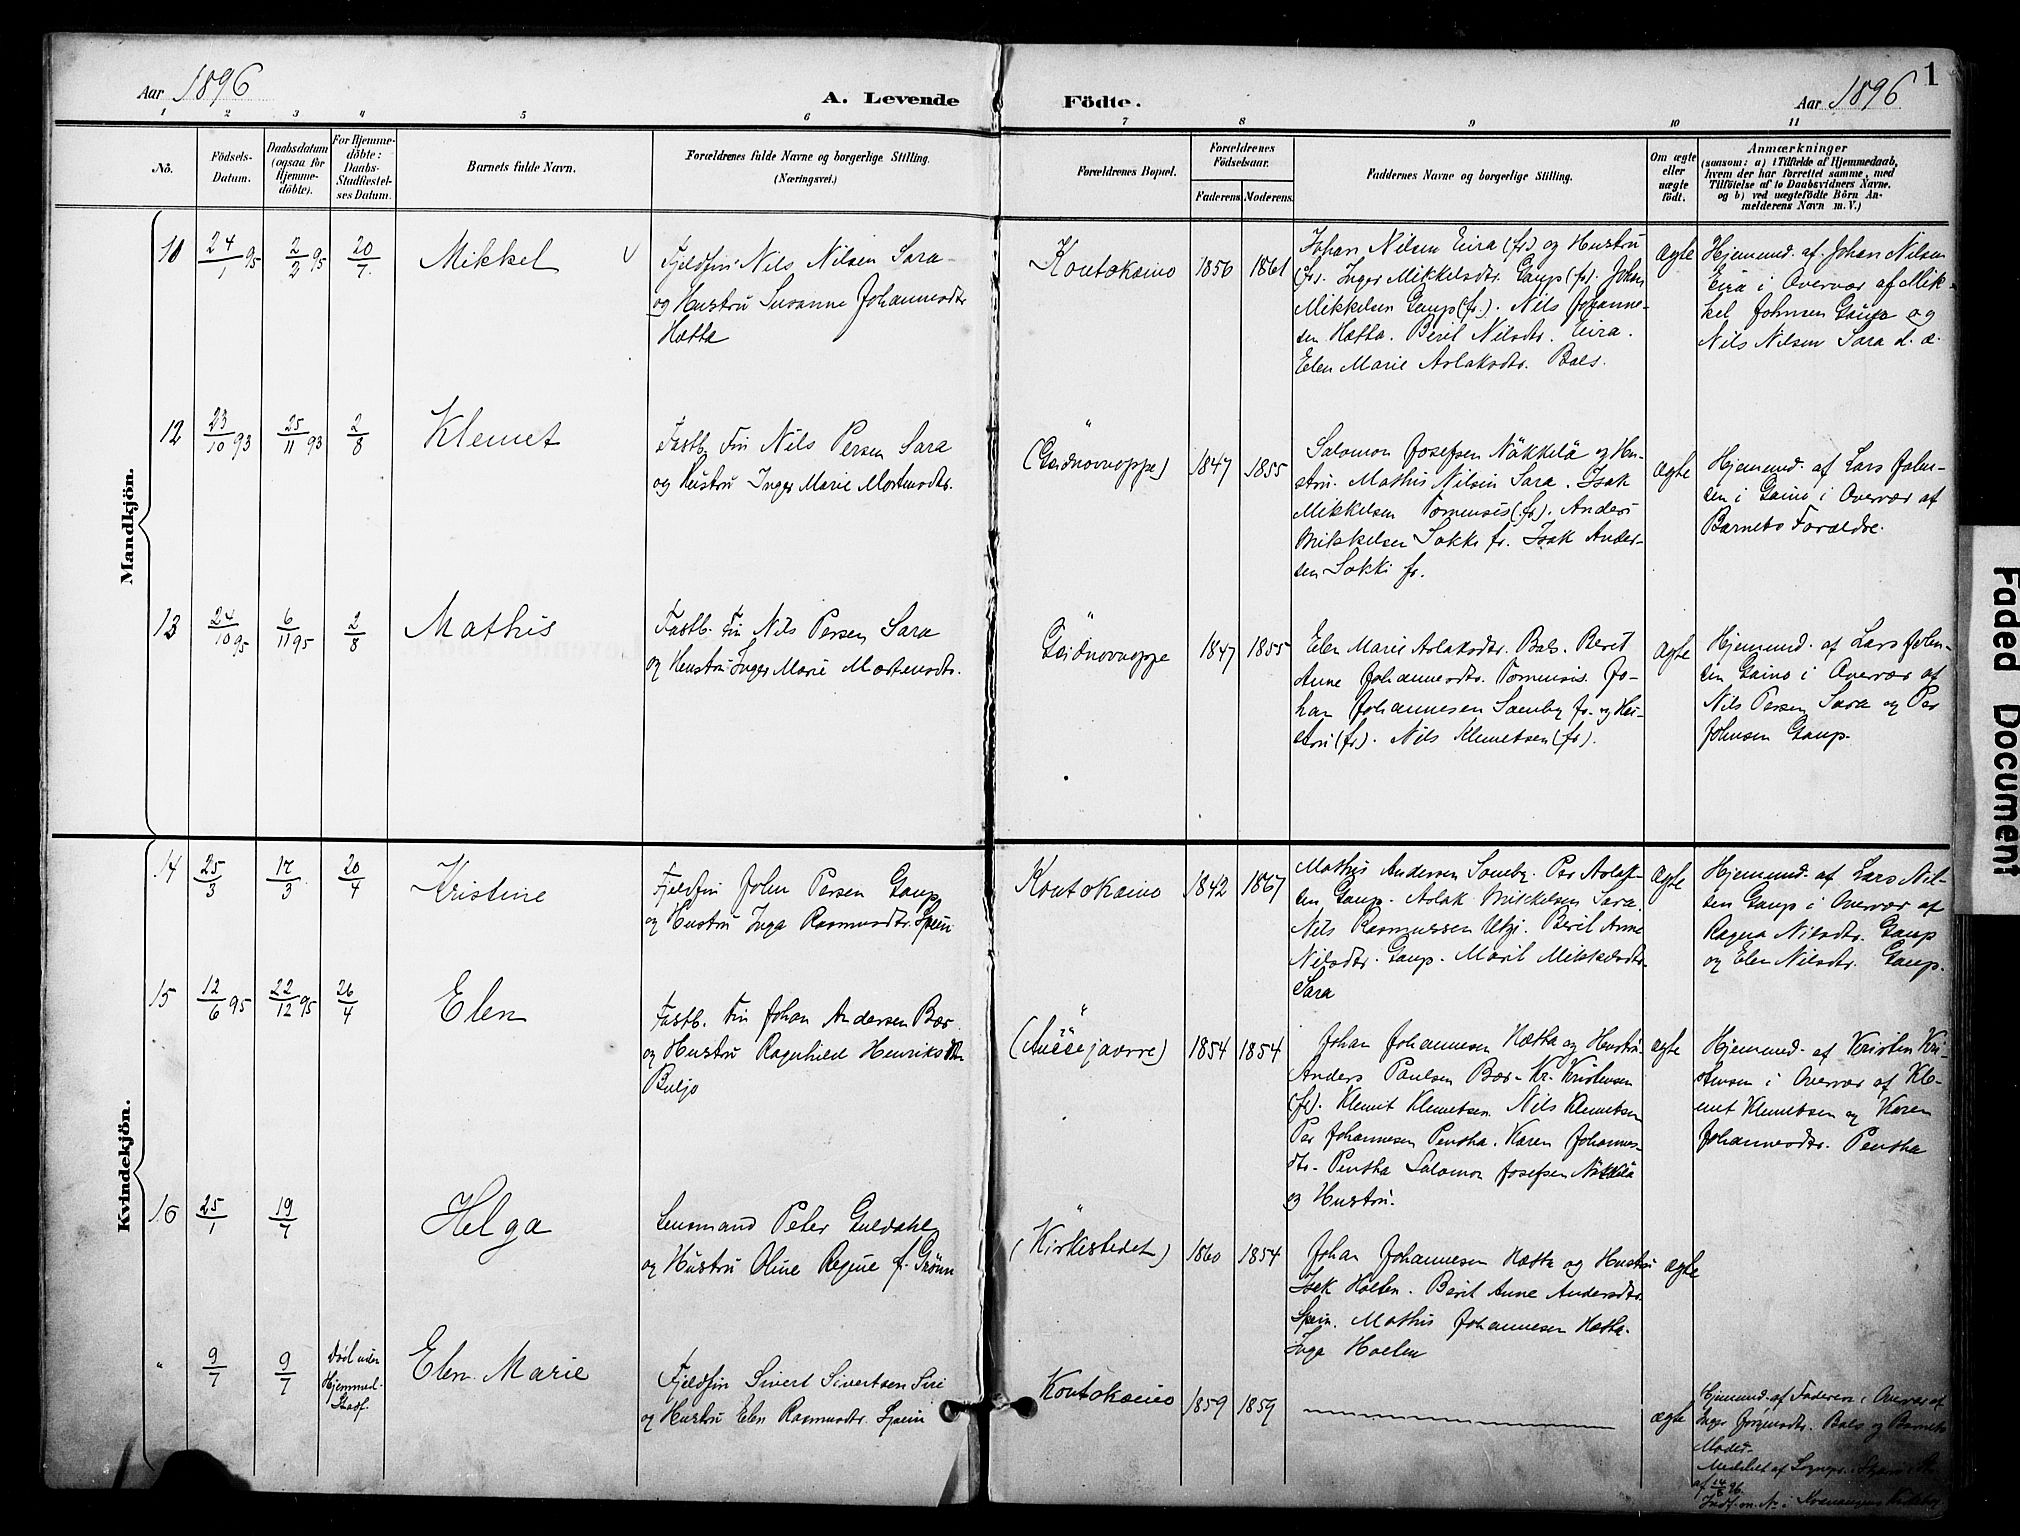 Aar 1896
A. Levende Födte.
Aar 1896
1
1 2 3 4 5 6 7 8 9 10 11
No.
Födsels-Datum.
Daabsdatum (ogsaa for Hjemme-döbte).
For Hjemme-döbte: Daabs-Stadfæstel-ses Datum.
Barnets fulde Navn.
Forældrenes fulde Navne og borgerlige Stilling.
(Næringsvei.)
Forældrenes Bopæl.
Forældrenes Födselsaar.
Faderens. Moderens.
Faddernes Navne og borgerlige Stilling.
Om ægte eller uægte født.
Anmærkninger
(saasom: a) i Tilfælde af Hjemmedaab,
hvem der har forrettet samme, med
Tilföielse af to Daabsvidners Navne.
og b) ved uægtefödte Börn An-
melderens Navn m. V.)
Mandkjön.
10
24/1 95
2/2 95
20/7.
Mikkel
Fjeldfin Nils Nilsen Sara
og Hustru Susanne Johannesdtr
Hætta
Koutokæino
1856
1861
Johan Nilsen Eira (fr) og Hustru
(fr). Inger Mikkelsdtr. Gaup (fr). John
Mikkelsen Gaup (fr). Nils Johanne-
sen Hætta. Berit Nilsdtr. Eira.
Elen Marie Aslaksdtr. Bals.
ægte
Hjemmed. af Johan Nilsen
Eira i Overvær af Mik-
kel Johnsen Gaup og
Nils Nilsen Sara d. æ.
12
23/10 93
25/11 93
2/8
Klemet
Fastb. Fin Nils Persen Sara
og Hustru Inger Marie Mortensdtr.
"
(Gæidnovuoppe)
1847
1855
Salomon Josefsen Näkkelä og Hu-
stru. Mathis Nilsen Sara. Isak
Mikkelsen Tornensis (fr). Anders
Mikkelsen Sokki fr. Isak Ander-
sen Sokki fr.
ægte
Hjemmed. af Lars John-
sen i Gaino i Overvær af
Barnets Forældre.
13
24/10 95
6/11 95
2/8
Mathis
Fastb. Fin Nils Persen Sara
og Hustru Inger Marie Mortensdtr.
"
Gæidnovuoppe
1847
1855
Elen Marie Aslaksdtr. Bals. Berit
Anne Johannesdtr. Tornensis. Jo-
han Johannesen Somby fr. og Hu-
stru (fr). Nils Klemetsen (fr).
ægte
Hjemmed. af Lars John-
sen Gaino i Overvær af
Nils Persen Sara og Per
Johnsen Gaup.
Kvindekjön.
14
25/3
17/3
20/4
Kristine
Fjeldfin John Persen Gaup
og Hustru Inga Rasmusdtr. Spein
Koutokæino
1842
1867
Mathis Andersen Somby. Per Aslak-
sen Gaup. Aslak Mikkelsen Sara.
Nils Rasmussen Utsi. Berit Anne
Nilsdtr. Gaup. Marit Mikkelsdtr.
Sara
ægte
Hjemmed. af Lars Nil-
sen Gaup i Overvær af
Ragna Nilsdtr. Gaup
og Elen Nilsdtr. Gaup.
15
12/6 95
22/12 95
26/4
Elen
Fastb. Fin Johan Andersen Bær
og Hustru Ragnhild Henriksdtr
Buljo
"
1854
1854
Johan Johannesen Hætta og Hustru.
Anders Paulsen Bær. Kr. Kristensen
(fr). Klemit Klemetsen. Nils Klemetsen
Per Johannesen Pentha. Karen Johannes-
dtr. Pentha Salomon Josefsen Näkkälä
og Hustru.
ægte
Hjemmed. af Kristen Kri-
stensen i Overvær af Kle-
met Klemetsen og Karen
Johannesdtr. Pentha
16
25/1
19/7
Helga
Lensmand Peter Guldahl
og Hustru Oline Regine f. Grönn
"
(Kirkestedet)
1860
1854
Johan Johannesen Hætta og Hustru
Isak Holten. Berit Anne Andersdtr.
Spein. Mathis Johannesen Hætta.
Inga Hoelen
ægte
"
9/7
9/7
Död uden
Hjemmed.
Stadf.
Elen Marie
Fjeldfin Sivert Sivertsen Siri
og Hustru Elen Rasmusdtr. Spein
Koutokæino
1859
1859
ægte
Hjemmed. af Faderen i Overvær af
Inger Jörgensdtr. Bals og Barnets
Moder.
Meddelt af Sognepr. i
af 14/8 96.
Indf. m. No i Kvænangens Kirkebog
Faded Document